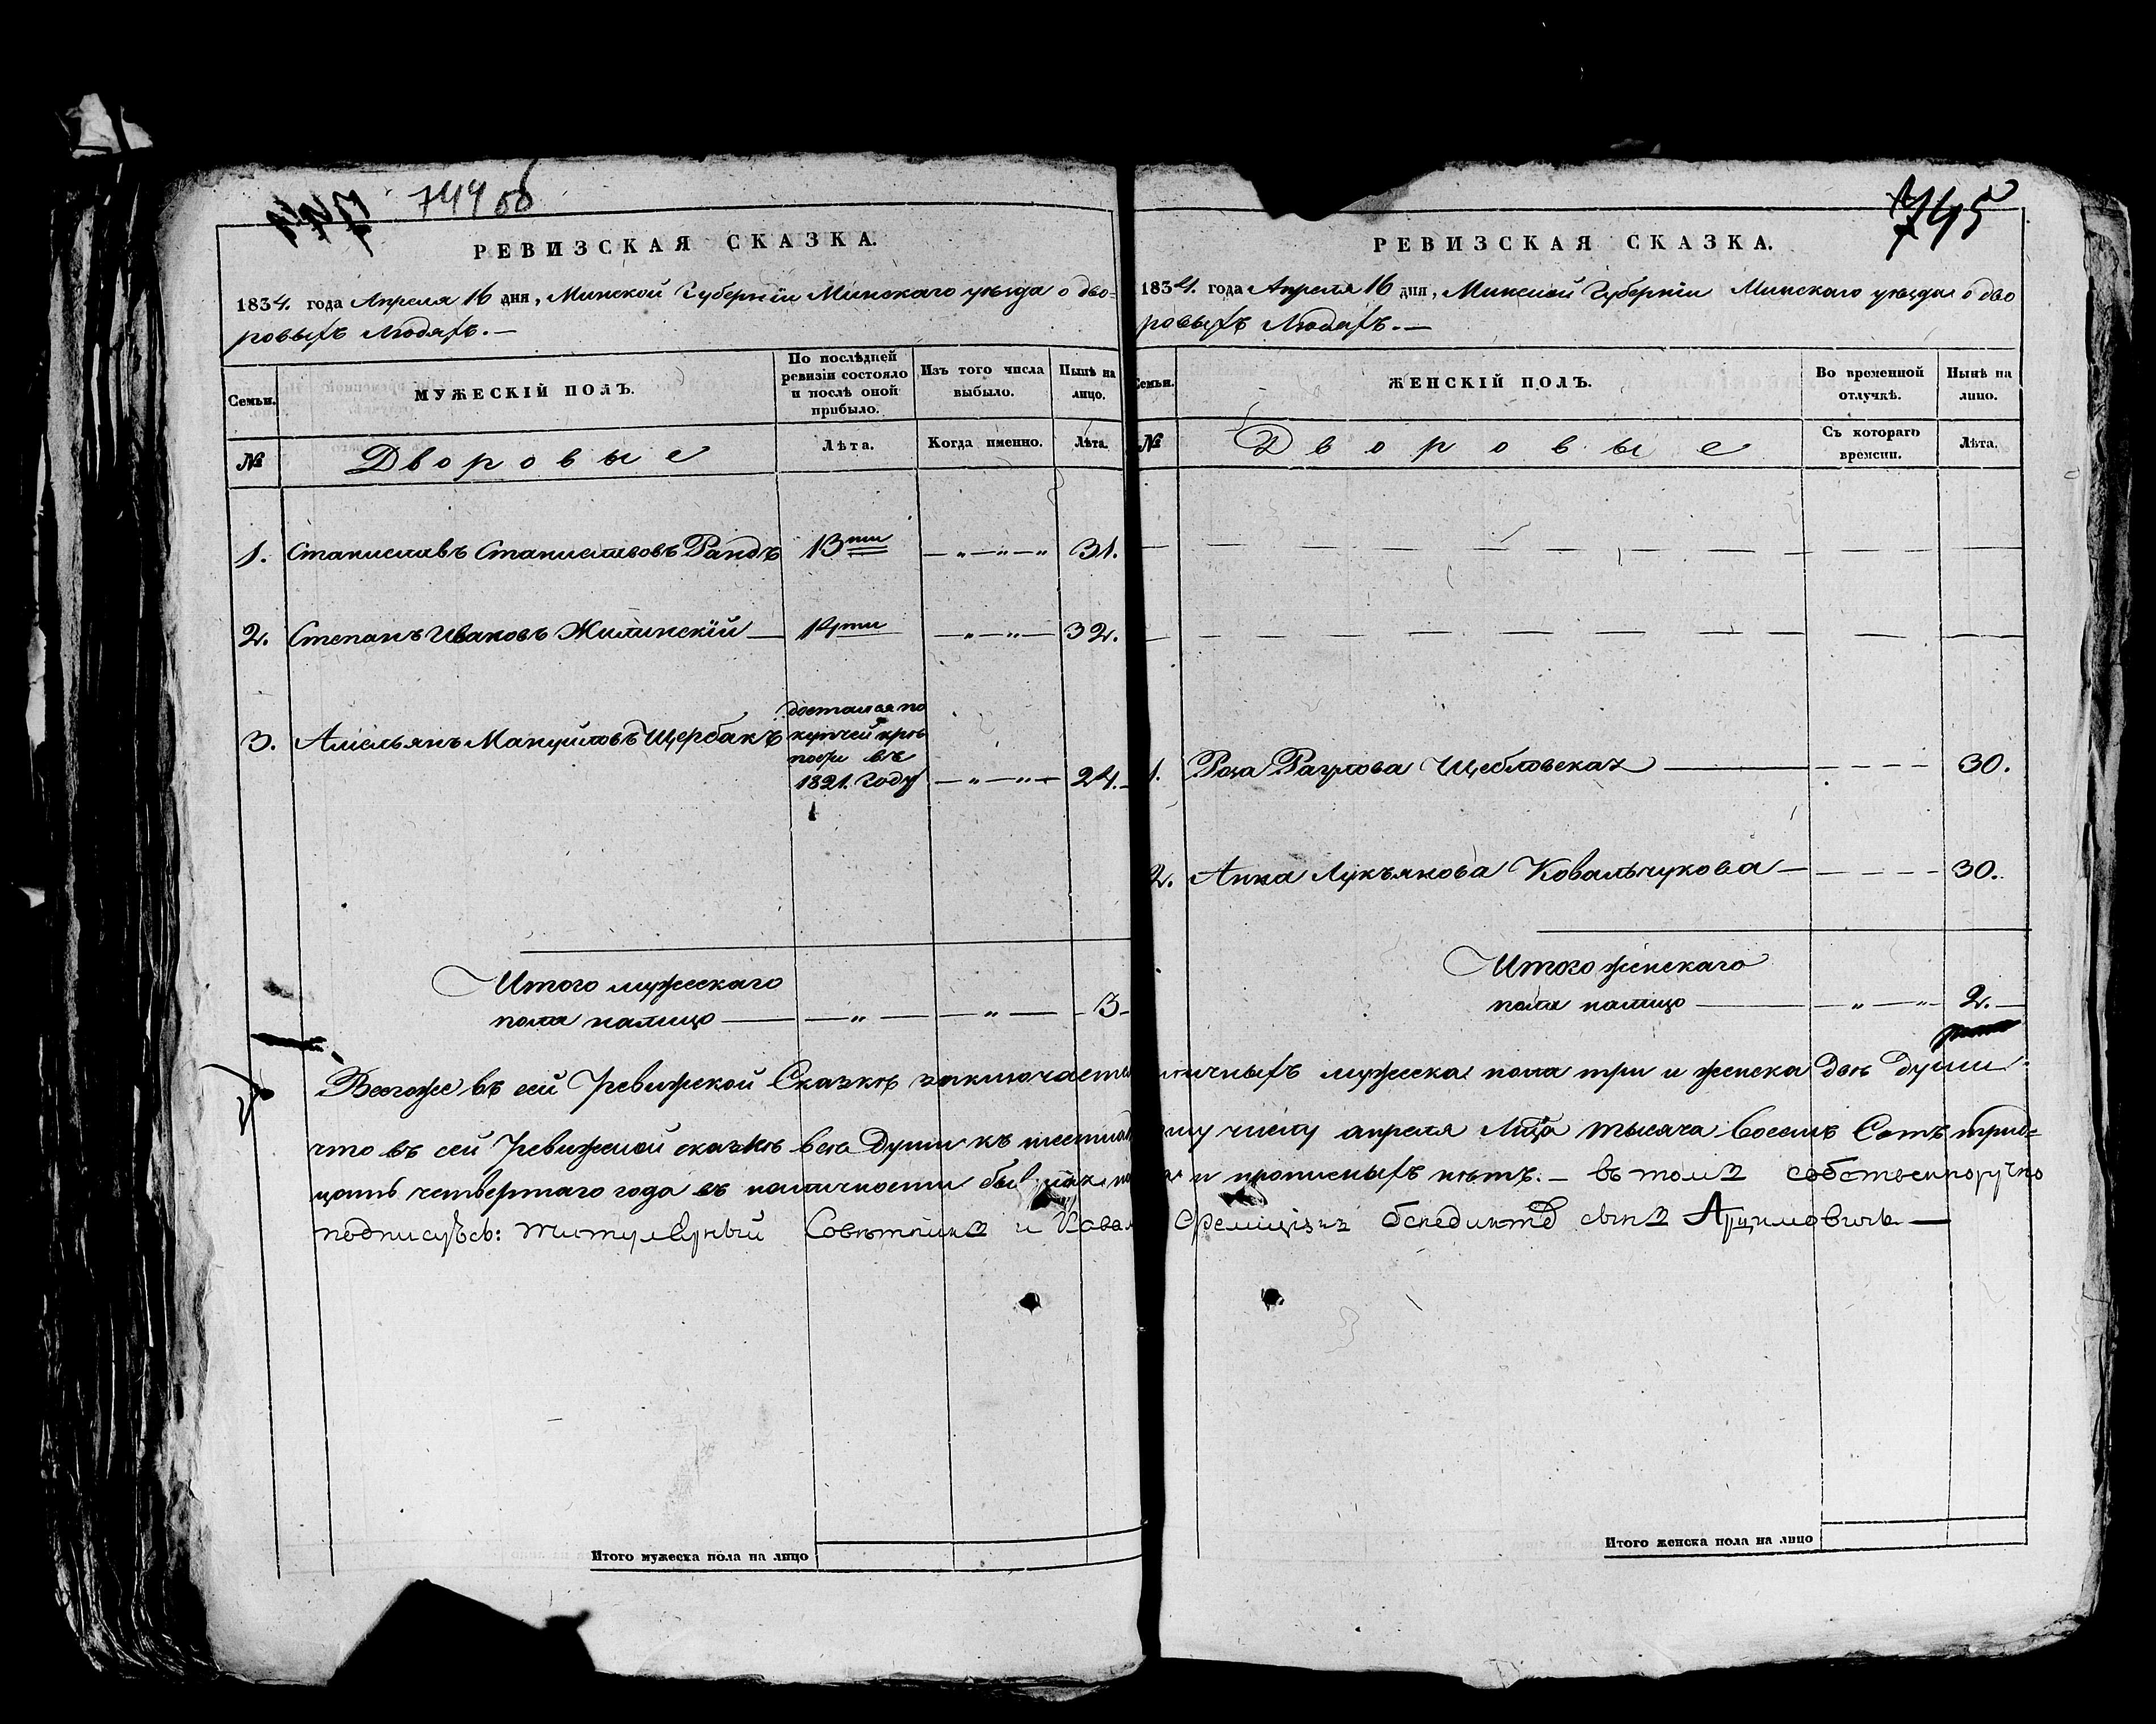 744 об
РЕВИЗСКАЯ СКАЗКА.
1834. года Апреля 16 дня, Минской Губерніи Минскаго уѣзда о дво-
ровыхъ Людяхъ. —
Семьи.
МУЖЕСКІЙ ПОЛЪ.
По послѣдней ревизіи состояло и послѣ оной прибыло.
Изъ того числа выбыло.
Нынѣ на лицо.
№
Дворовые
Лѣта.
Когда именно.
Лѣта.
1. Станиславъ Станиславовъ Рандъ 13ти — „ — „ — „ 31.
2. Степанъ Ивановъ Жилинскій — 14ти — „ — „ — 32.
3. Амельянъ Мануйловъ Щербакъ
достался по
купчей крѣ
пости въ
1821. году — „ — „ — 24. —
Итого мужескаго
пола налицо — — „ — — „ — 3 —
745
РЕВИЗСКАЯ СКАЗКА.
1834. года Апреля 16 дня, Минской Губерніи Минскаго уѣзда о дво
ровыхъ Людяхъ. —
Семьи.
ЖЕНСКІЙ ПОЛЪ.
Во временной отлучкѣ.
Нынѣ на лицо.
№
Дворовые
Съ котораго времени.
Лѣта.
1. Роза Паулова Щебловская — — — — — 30.
2. Анна Лукъянова Ковальчукова — — — — — 30.
Итого женскаго
пола налицо — — „ — „ — 2. —
Всегоже въ сей Ревижской Сказкѣ заключаетъ личныхъ мужеска пола три и женска двѣ души
что въ сей Ревижской сказкѣ все души къ шестнад ому числу апреля Мца тысяча восемь Сотъ трид=
цать четвертаго года въ наличности и прописныхъ нѣтъ. — въ томъ собственноручно
подписуюсь: Титулярный Совѣтникъ и Кавал Бенедиктъ сынъ Арцимовичъ —
Итого мужеска пола на лицо
Итого женска пола на лицо